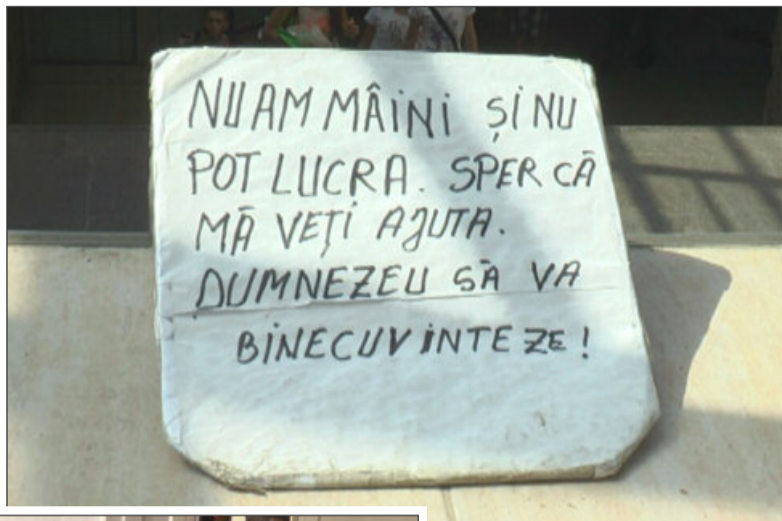 NU AM MÂINI ŞI NU
POT LUCRA. SPER CĂ
MĂ VEŢI AJUTA.
DUMNEZEU SĂ VA
BINECUVINTEZE!